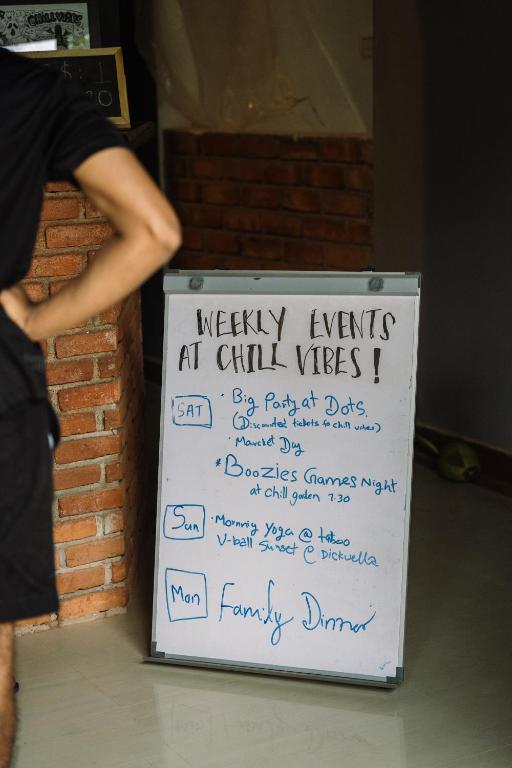 CHILL VIBES
$: 1
WEEKLY EVENTS
AT CHILL VIBES!
SAT
· Big Party at Dots.
(Discounted tickets to chill vibes)
· Market Day
* Boozies Games Night
at chill garden 7.30
Sun
· Morning Yoga @ taboo
V-ball Sunset @ Dickwella
Mon
Family Dinner